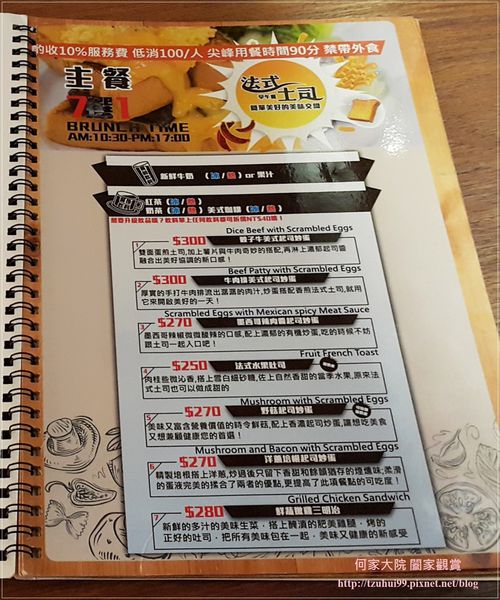 酌收10%服務費 低消100/人 尖峰用餐時間90分 禁帶外食
主餐
7選1
BRUNCH TIME
AM:10:30-PM:17:00
法式
早午餐
土司
簡單美好的美味交織
新鮮牛奶 (冰/熱) or 果汁
紅茶 (冰/熱)
奶茶 (冰/熱) 美式咖啡 (冰/熱)
Dice Beef with Scrambled Eggs
1 $300 骰子牛美式起司炒蛋
雙面蛋煎土司,加上薯片與牛肉奇妙的搭配,再淋上濃郁起司醬
融合出美好協調的新口感!
Beef Patty with Scrambled Eggs
2 $300 牛肉排美式起司炒蛋
厚實的手打牛肉排流出潺潺的肉汁,炒蛋搭配香煎法式土司,就用
它來開啟美好的一天!
Scrambled Eggs with Mexican spicy Meat Sauce
3 $270 墨西哥辣肉醬起司炒蛋
墨西哥辣椒微微酸辣的口感,配上濃郁的有機炒蛋,吃的時候不妨
跟土司一起入口吧!
Fruit French Toast
4 $250 法式水果吐司
肉桂些微沁香,搭上雪白細砂糖,佐上自然香甜的當季水果,原來法
式土司也可以做成甜的
Mushroom with Scrambled Eggs
5 $270 野菇起司炒蛋
美味又富含營養價值的時令鮮菇,配上香濃起司炒蛋,讓想吃美食
又想兼顧健康您的首選!
Mushroom and Bacon with Scrambled Eggs
6 $270 洋蔥培根起司炒蛋
精製培根搭上洋蔥,炒過後只留下香甜和餘韻猶存的煙燻味;柔滑
的蛋液完美的揉合了兩者的優點,更提高了此項餐點的可吃度!
Grilled Chicken Sandwich
7 $280 鮮蔬嫩雞三明治
新鮮的多汁的美味生菜,搭上醃漬的肥美雞腿,烤的
正好的吐司,把所有美味包在一起,美味又健康的新感受
何家大院 闔家觀賞
http://tzuhui99.pixnet.net/blog